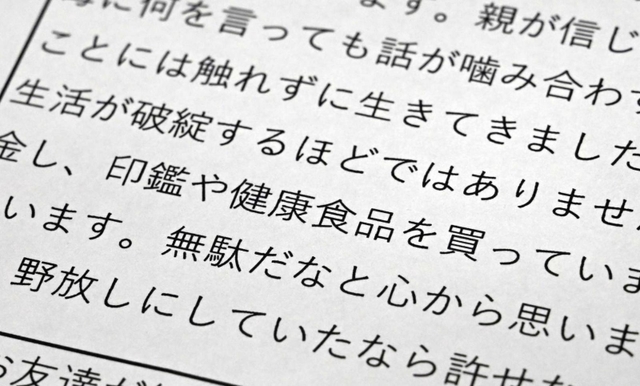 に何を言っても話が噛み合わ
ます。親が信じ
ことには触れずに生きてきました
生活が破綻するほどではありませ
金し、印鑑や健康食品を買っていま
います。無駄だなと心から思いま
野放しにしていたなら許せ
お友達が